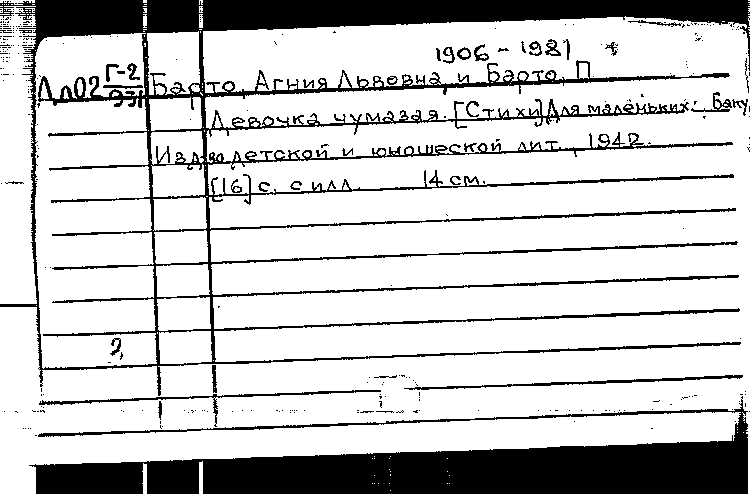 1906 - 1981
Г-2
Барто, Агния Львовна, и Барто, П
Девочка чумазая. [Стихи] Для маленьких. Баку,
Изд-во детской и юношеской лит., 1942.
[16] с. с илл. 14 см.
2